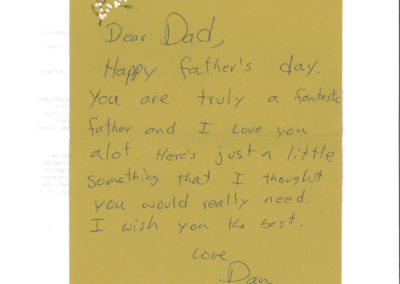 Dear Dad,
Happy father's day.
You are truly a fantastic
father and I Love you
alot. Here's just a little
something that I thought
you would really need.
I wish you the best.
Love
Dan